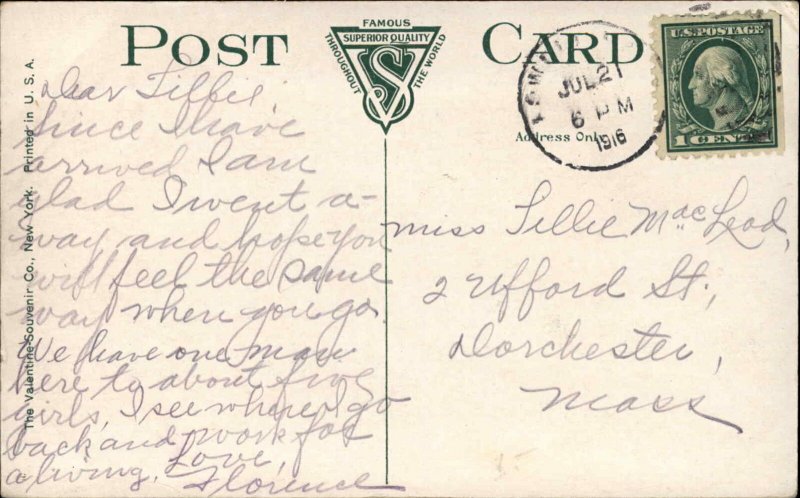 POST CARD
FAMOUS
SUPERIOR QUALITY
THROUGHOUT
THE WORLD
VS
The Valentine-Souvenir Co., New York. Printed in U. S. A.
JUL 21
6 PM
1916
U.S. POSTAGE
1 CENT
Address Only
Dear Lillie,
Since I have
arrived I am
glad I went a-
way and hope you
will feel the same
way when you go.
We have one man
here to about five
girls, I see where I go
back and work for
a living.
Love,
Florence
Miss Lillie MacLeod,
2 Ufford St.,
Dorchester,
Mass